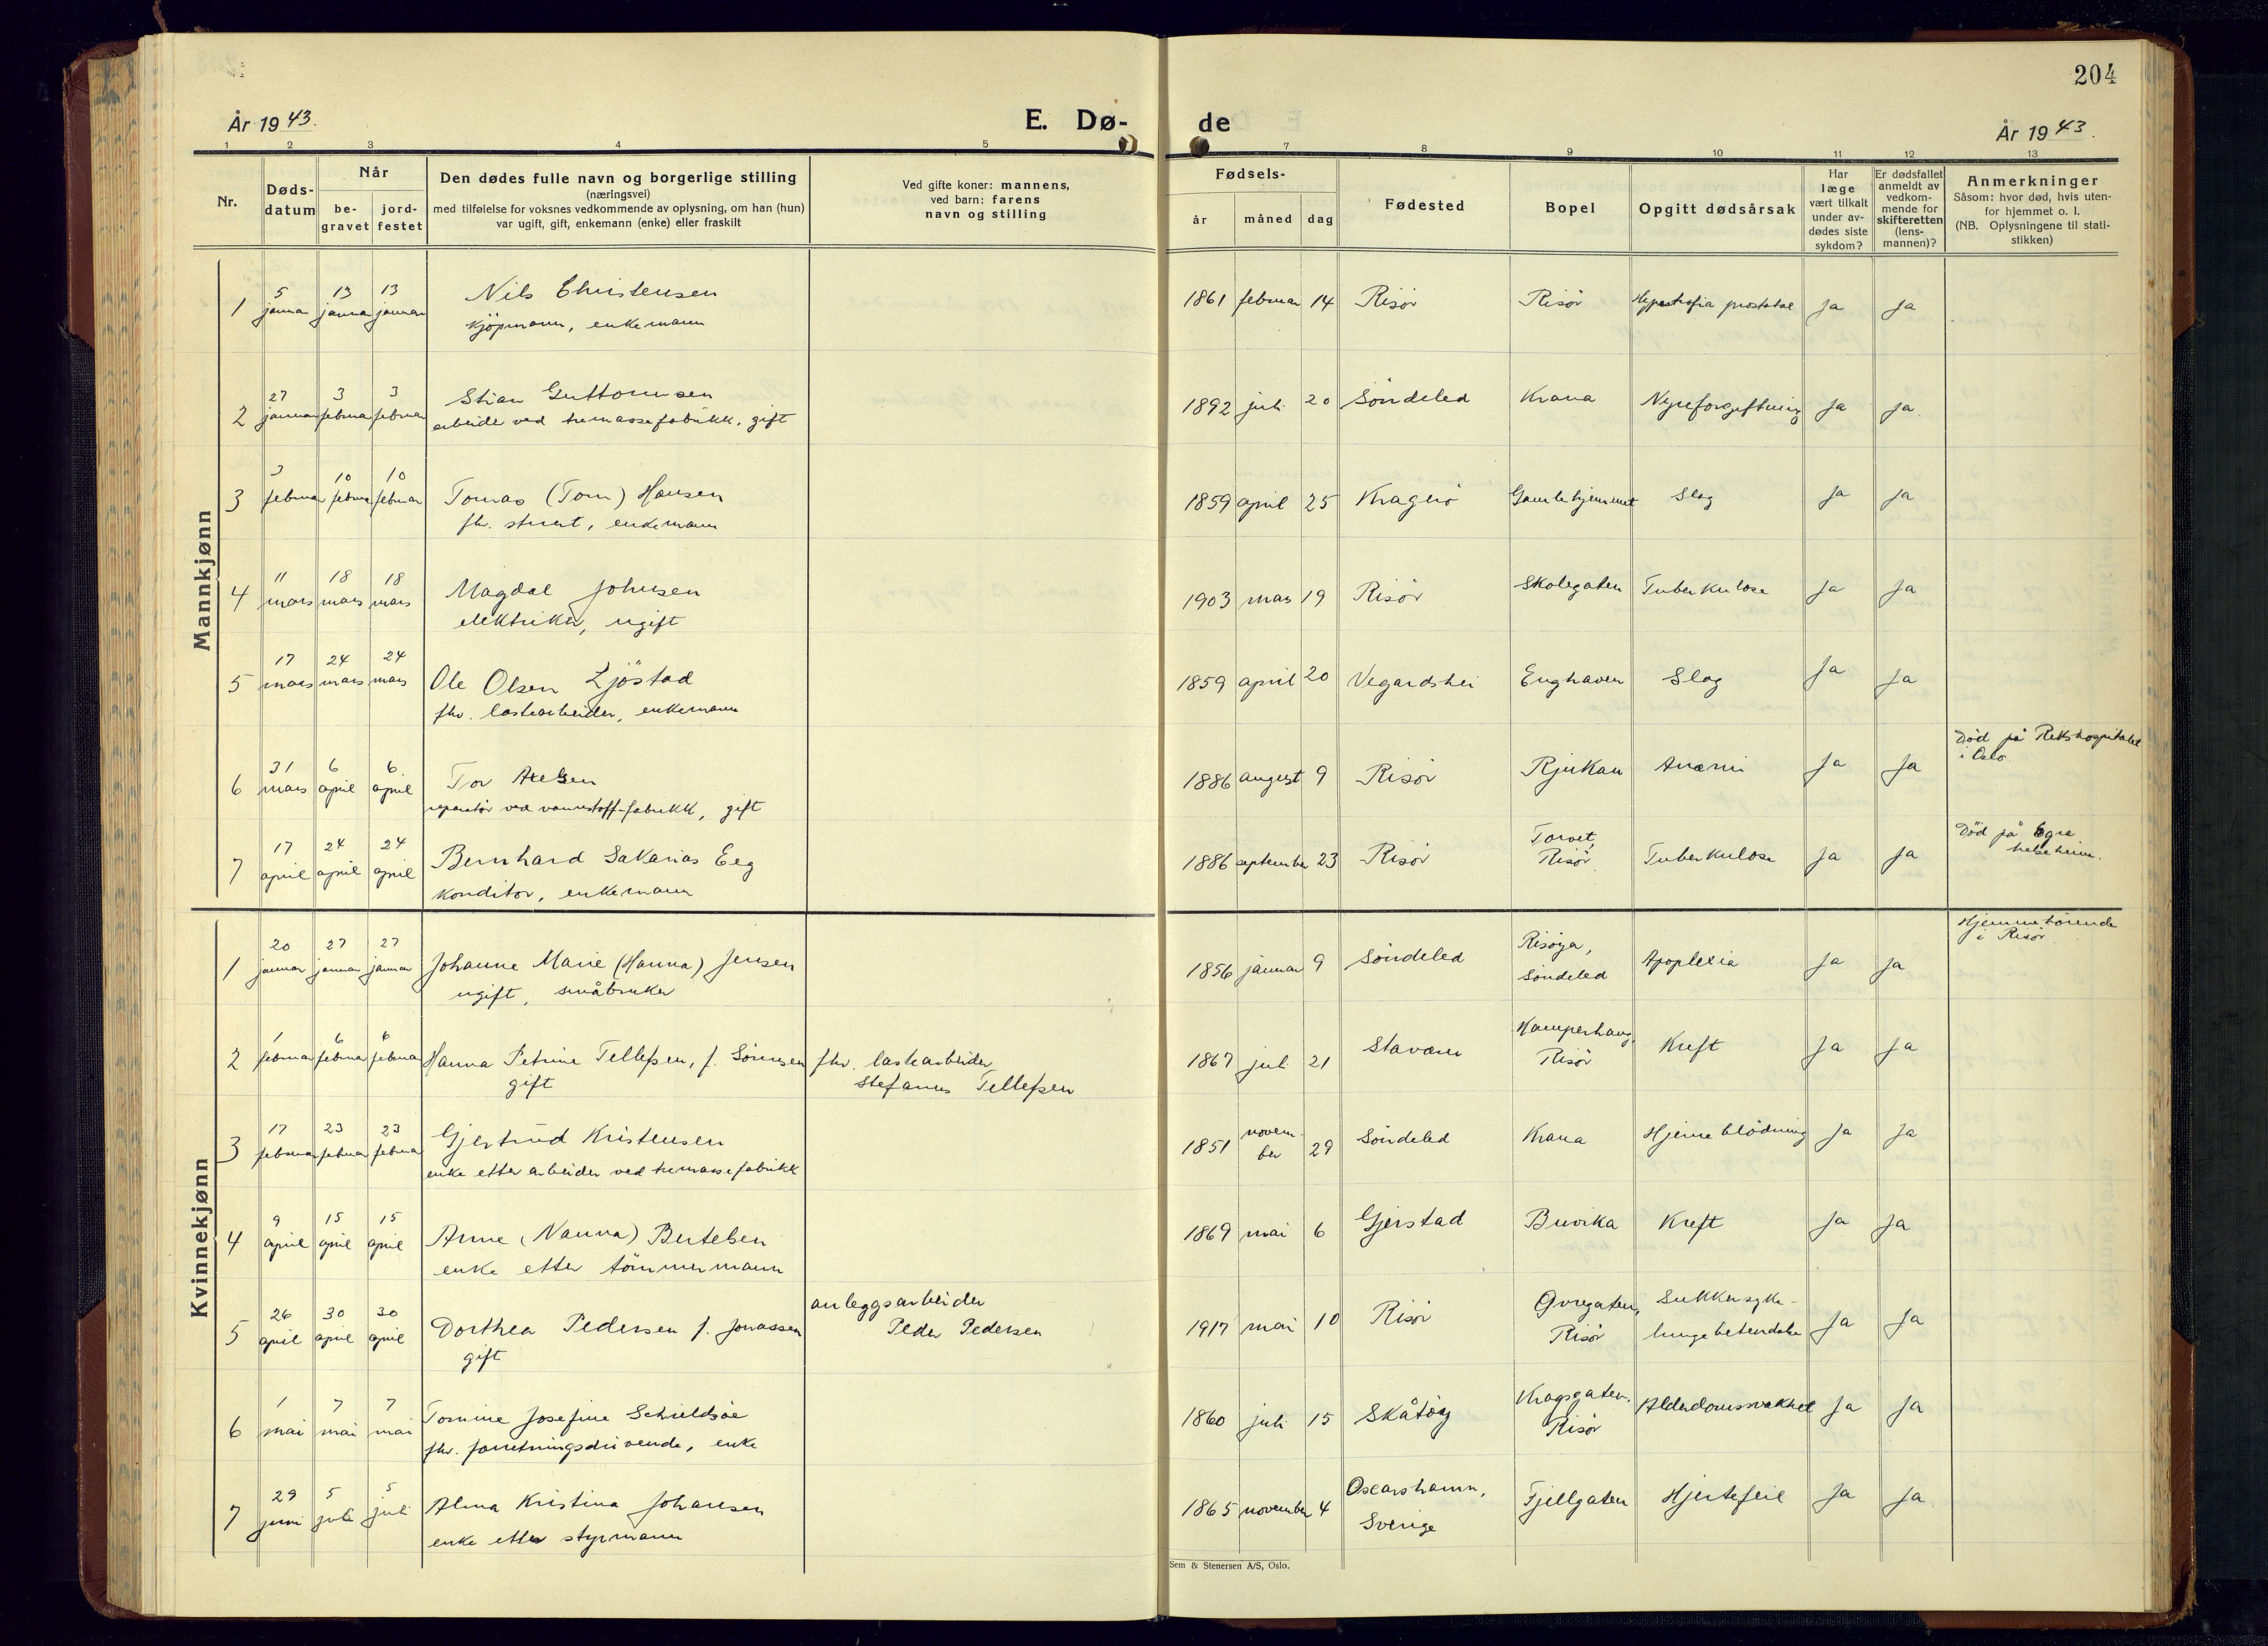 204
År 1943.
E. Dø-
de
År 1943.
1 2 3 4 5 7 8 9 10 11 12 13
Nr.
Døds-
datum
Når
be-
gravet
jord-
festet
Den dødes fulle navn og borgerlige stilling
(næringsvei)
med tilføielse for voksnes vedkommende av oplysning, om han (hun)
var ugift, gift, enkemann (enke) eller fraskilt
Ved gifte koner: mannens,
ved barn: farens
navn og stilling
Fødsels-
år måned dag
Fødested
Bopel
Opgitt dødsårsak
Har
læge
vært tilkalt
under av-
dødes siste
sykdom?
Er dødsfallet
anmeldt av
vedkom-
mende for
skifteretten
(lens-
mannen)?
Anmerkninger
Såsom: hvor død, hvis uten-
for hjemmet o. l.
(NB. Oplysningene til stati-
stikken)
Mannkjønn
1 5 januar 13 januar 13 januar Nils Christensen 1861 februar 14 Risör Risör Hypertrofia prostatae Ja Ja
kjöpmann, enkemann
2 27 januar 3 februar 3 februar Stian Guttormsen 1892 juli 20 Söndeled Krana Nyreforgiftning Ja Ja
arbeider ved tremassefabrikk, gift
3 3 februar 10 februar 10 februar Tomas (Tom) Hansen 1859 april 25 Kragerö Gamlehjemmet Slag Ja Ja
fhv. stuert, enkemann
4 11 mars 18 mars 18 mars Magdal Johnsen 1903 mars 19 Risör Skolegaten Tuberkulose Ja Ja
elektriker, ugift
5 17 mars 24 mars 24 mars Ole Olsen Ljöstad 1859 april 20 Vegårdshei Enghaven Slag Ja Ja
fhv. lastearbeider, enkemann
6 31 mars 6 april 6 april Tor Axelsen 1886 august 9 Risör Rjukan Anæmi Ja Ja Död på Rikshospitalet
i Oslo.
reparatør ved vannstoff-fabrikk, gift
7 17 april 24 april 24 april Bernhard Sakarias Eeg 1886 september 23 Risör Torvet, Risör. Tuberkulose Ja Ja Död på Egra
helseheim.
konditor, enkemann
Kvinnekjønn
1 20 januar 27 januar 27 januar Johanne Marie (Hanna) Jensen 1856 januar 9 Söndeled Risöya, Söndeled Apoplexia Ja Ja Hjemmehörende
i Risör.
ugift, småbruker
2 1 februar 6 februar 6 februar Hanna Petrine Tellefsen, f. Sörensen fhv. lastearbeider 1867 juli 21 Stavären Kamperhaug, Risör Kreft Ja Ja
gift Stefanus Tellefsen
3 17 februar 23 februar 23 februar Gjertrud Kristensen 1851 november 29 Söndeled Krana Hjerneblödning Ja Ja
enke etter arbeider ved tremassefabrikk
4 9 april 15 april 15 april Anne (Nanna) Bertelsen 1869 mai 6 Gjerstad Buvika Kreft Ja Ja
enke etter tömmermann
5 26 april 30 april 30 april Dorthea Pedersen f. Jonassen anleggsarbeider 1917 mai 10 Risör Øvregaten, Risör Sukkersyke - lungebetendelse Ja Ja
gift Peder Pedersen
6 1 mai 7 mai 7 mai Tomine Josefine Schieldsöe 1860 juli 15 Skåtöy Kragsgaten, Risör Alderdomssvakhet Ja Ja
fhv. forretningsdrivende, enke
7 29 juni 5 juli 5 juli Alma Kristina Johansen 1865 november 4 Oscarshamn, Sverige Fjellgaten Hjertefeil Ja Ja
enke etter styrmann
Sem & Stenersen A/S, Oslo.